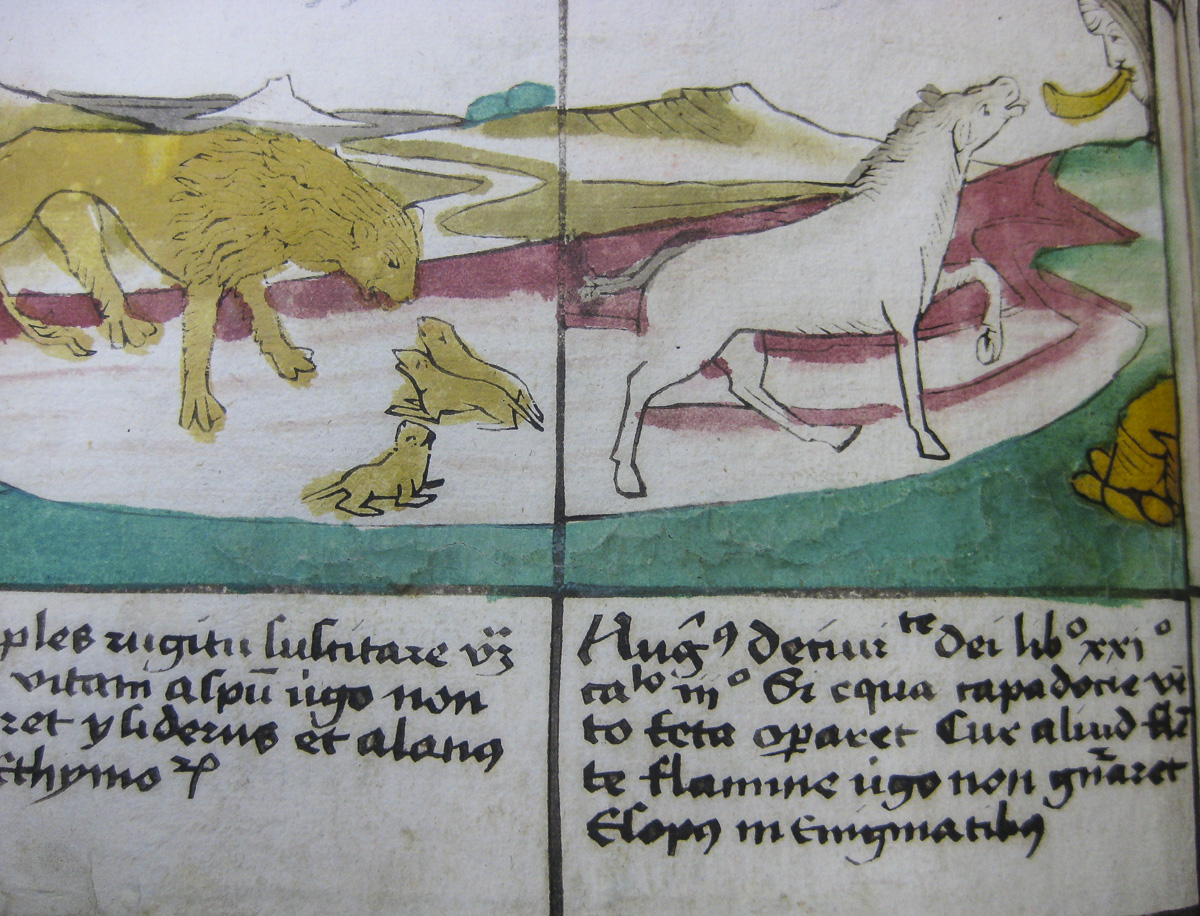 ples rugitu suscitare vȝ
vitam aspū ůgo non
ret ysiderus et alanus
thymo ꝝ
Augꝰ deciuitᵗᵉ dei libº xxiº
caˡᵒ iiiº Si equa capadocie vē
to feta ꝯparet Cur aliud flā
te flamine ůgo non gn̄aret
Esopꝰ in Enigmatibꝰ